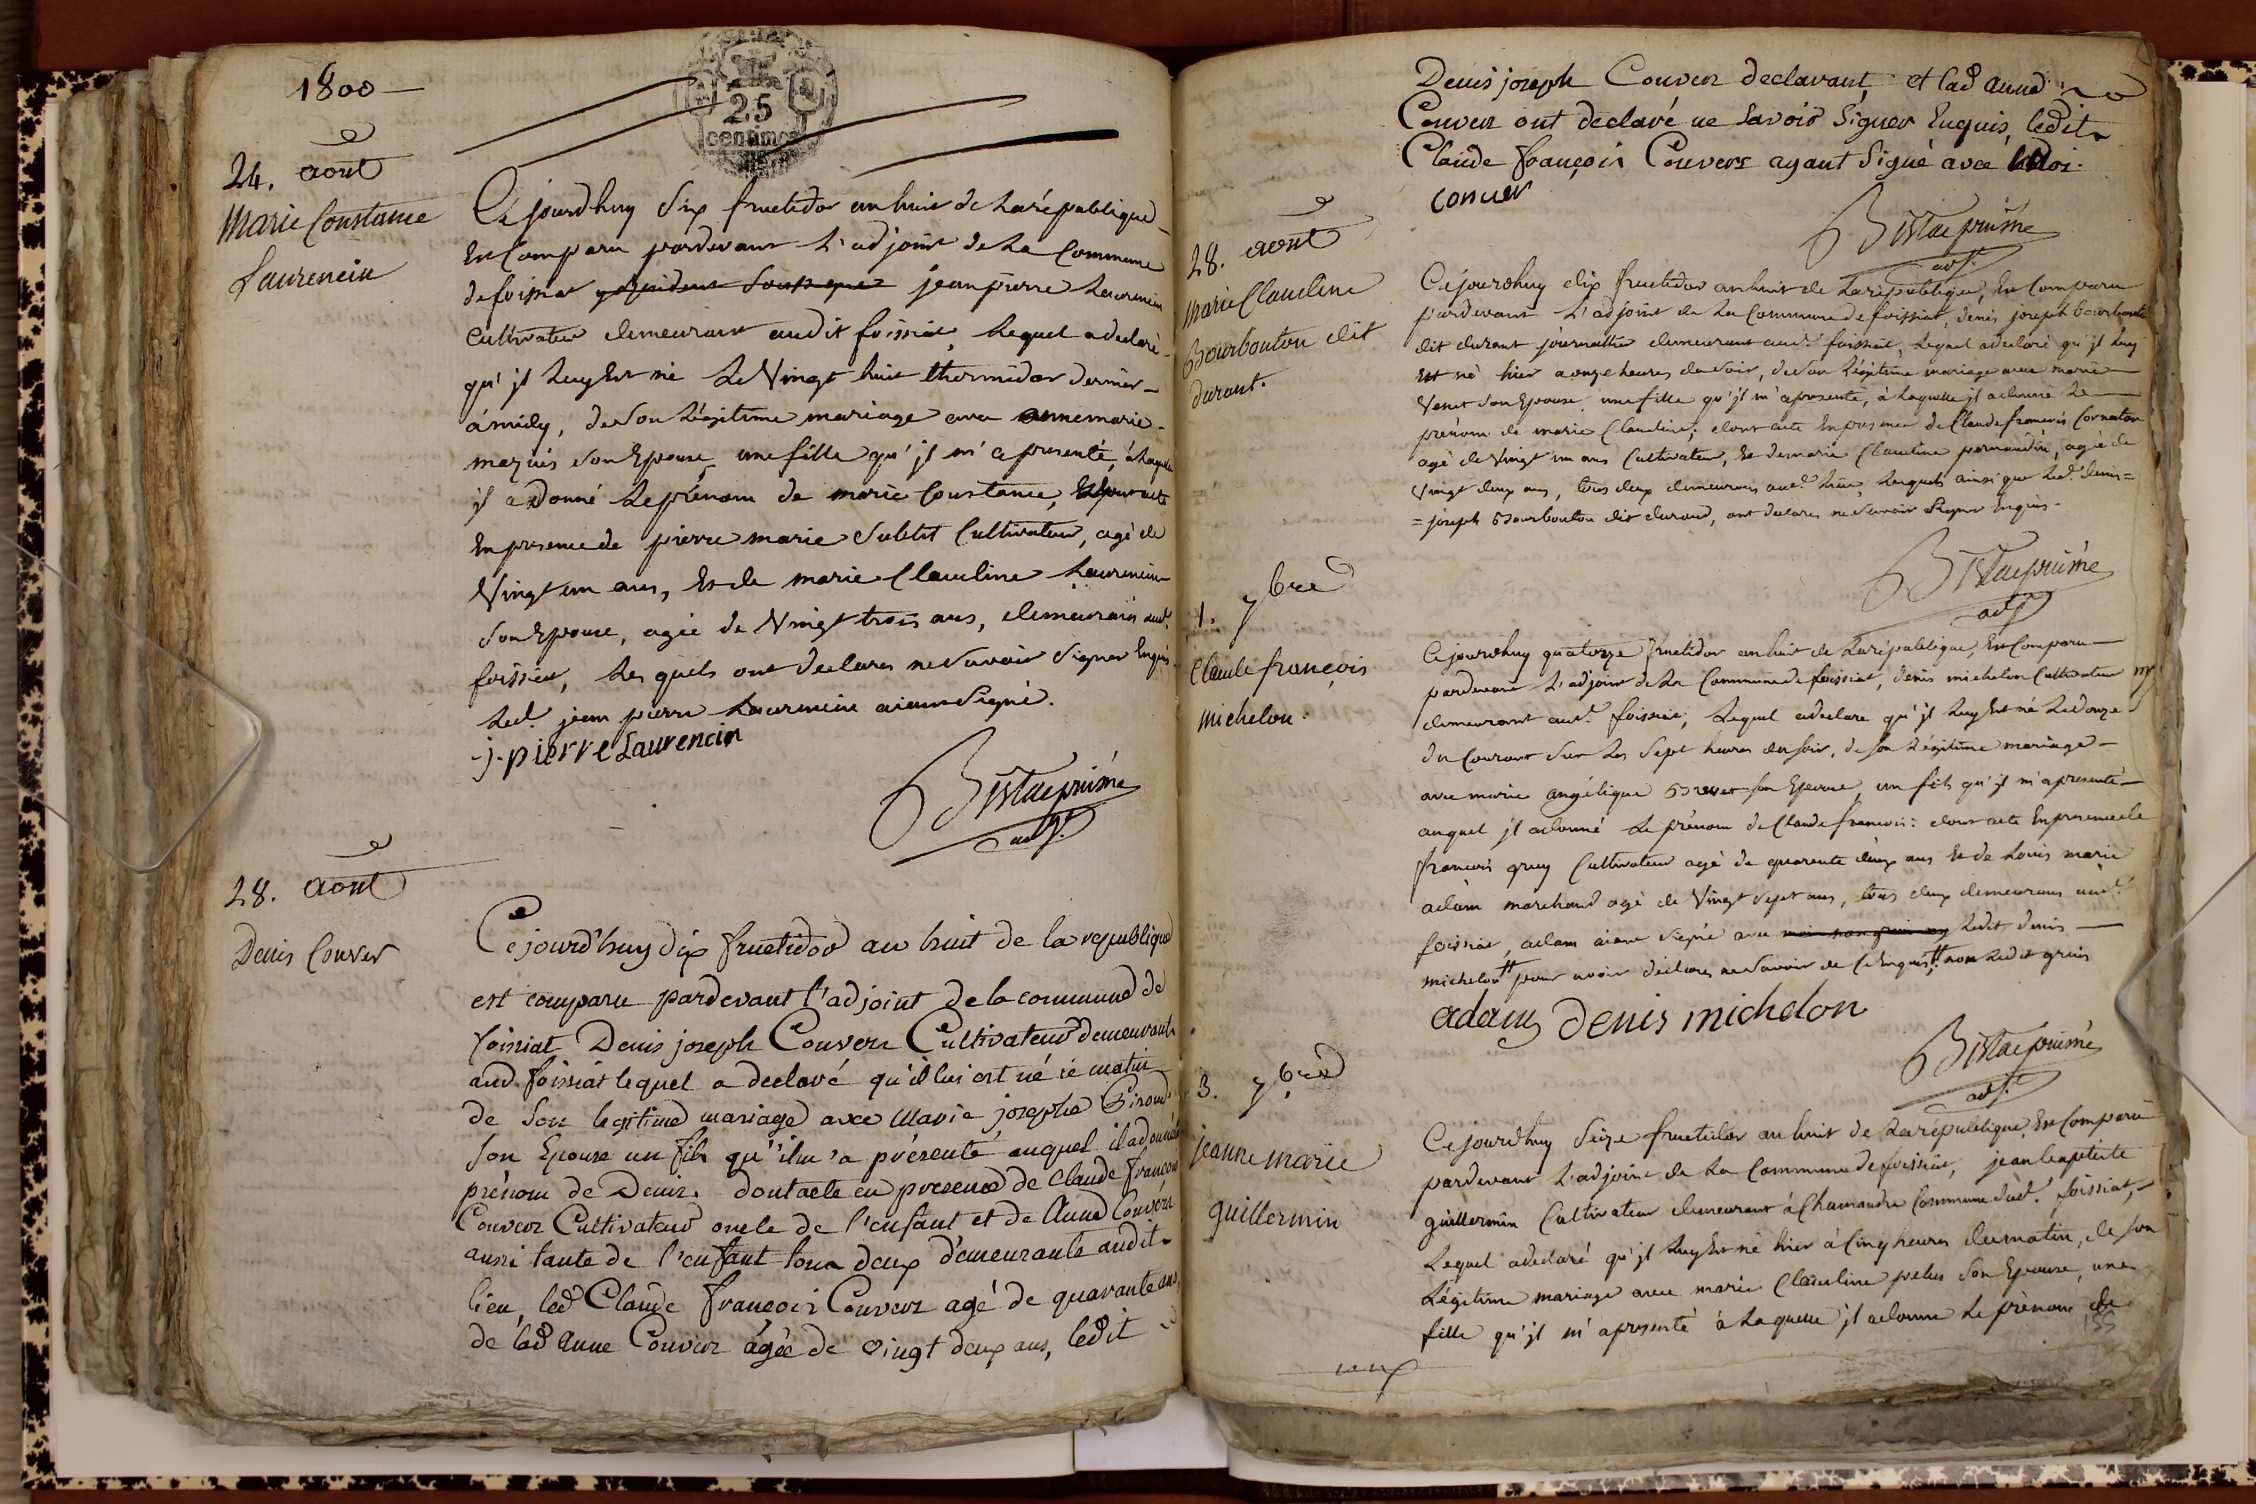 1800
25
centimes
24. aout
Marie Constance
Laurencin
Ce jourdhuy Six fructidor an huit de La république
Est Comparu pardevant L'adjoint de La Commune
de foissiat jean pierre Laurencin
Cultivateur demeurant audit foissiat, Lequel a declaré
qu'jl Luy Est né Le Vingt huit thermidor dernier
à midy, de Son Légitime mariage avec anne marie
mazuis Son Epouse une fille qu'jl m'a presenté, à Laquelle
jl a Donné Le prénom de marie Constance, dont acte
En presence de pierre marie Sublet Cultivateur, agé de
Vingt un ans, Et de marie Claudine Laurencin
Son Epouse, agée de Vingt trois ans, demeurans aud.
foissiat, Les quels ont declarés ne Savoir Signer Enquis
Led. jean pierre Laurencin aiant Signé.
j. pierre Laurencin
adj.
28. aout
Denis Couver
Ce jourd'huy dix fructidor an huit de la republique
est comparu pardevant l'adjoint de la commune de
foissiat Denis joseph Couvert Cultivateur demeurant
aud foissiat lequel a declaré qu'il lui est né ce matin
de Son legitime mariage avec Marie josephe
Son Epouse un fils qu'il m'a présenté auquel il a donné le
prénom de Denis. dont acte en presence de Claude francois
Couver Cultivateur oncle de l'enfant et de Anne Couver
aussi tante de l'enfant tous deux demeurants audit
lieu, led Claude françois Couver agé de quarante ans,
de lad Anne Couver agée de vingt deux ans, ledit
Denis joseph Couver declarant et lad anne
Couver ont declaré ne Savoir Signer Enquis, ledit
Claude françois Couver ayant Signé avec moi.
conver
adj.
28. aout
Marie Claudine
Bourbouton dit
durant.
Ce jourdhuy dix fructidor an huit de La république, Est Comparu
pardevant L'adjoint de La Commune de foissiat, denis joseph bourbouton
dit durant journallier demeurant aud. foissiat, Lequel a declaré qu'jl Luy
Est né hier a onze heures du Soir, de Son Légitime mariage avec marie
Venet Son Epouse une fille qu'jl m'a presenté, à Laquelle jl a donné Le
prénom de marie Claudine; dont acte En presence de Claude francois Cornaton
agé de Vingt un ans Cultivateur, Et de marie Claudine pernaudin, agée de
Vingt deux ans, tous deux demeurans aud. Lieu, Lesquels ainsi que Led. denis=
=joseph Bourbouton dit durand, ont declarés ne Savoir Signer Enquis.
adj.
1. 7bre
Claude françois
Michelon.
Ce jourdhuy quatorze fructidor an huit de La république, Est Comparu
pardevant L'adjoint de La Commune de foissiat, denis michelon Cultivateur
demeurant aud. foissiat, Lequel a declaré qu'jl Luy Est né Le douze
du Courant Sur Les Sept heures du Soir, de Son Légitime mariage
avec marie angélique Brevet Son Epouse, un fils qu'jl m'a presenté
auquel jl a donné Le prénom de Claude francois: dont acte En presence de
francois gruy Cultivateur agé de quarente deux ans Et de Louis marie
adam marchand agé de Vingt Sept ans, tous deux demeurans aud.
foissiat, adam aiant Signé avec Ledit denis
michelon pour avoir declarés ne Savoir de Ce Enquis. non Ledit gruis
adam Denis michelon
adj.
3. 7bre
jeanne marie
guillermin
Ce jourdhuy Seize fructidor an huit de La république Est Comparu
pardevant L'adjoint de La Commune de foissiat, jean baptiste
guillermin Cultivateur demeurant à Chamandre Commune dud. foissiat,
Lequel a declaré qu'jl Luy Est né hier à Cinq heures du matin, de Son
Légitime mariage avec marie Claudine pelus Son Epouse, une
fille qu'jl m'a presenté à Laquelle jl a donné Le prénom de
155